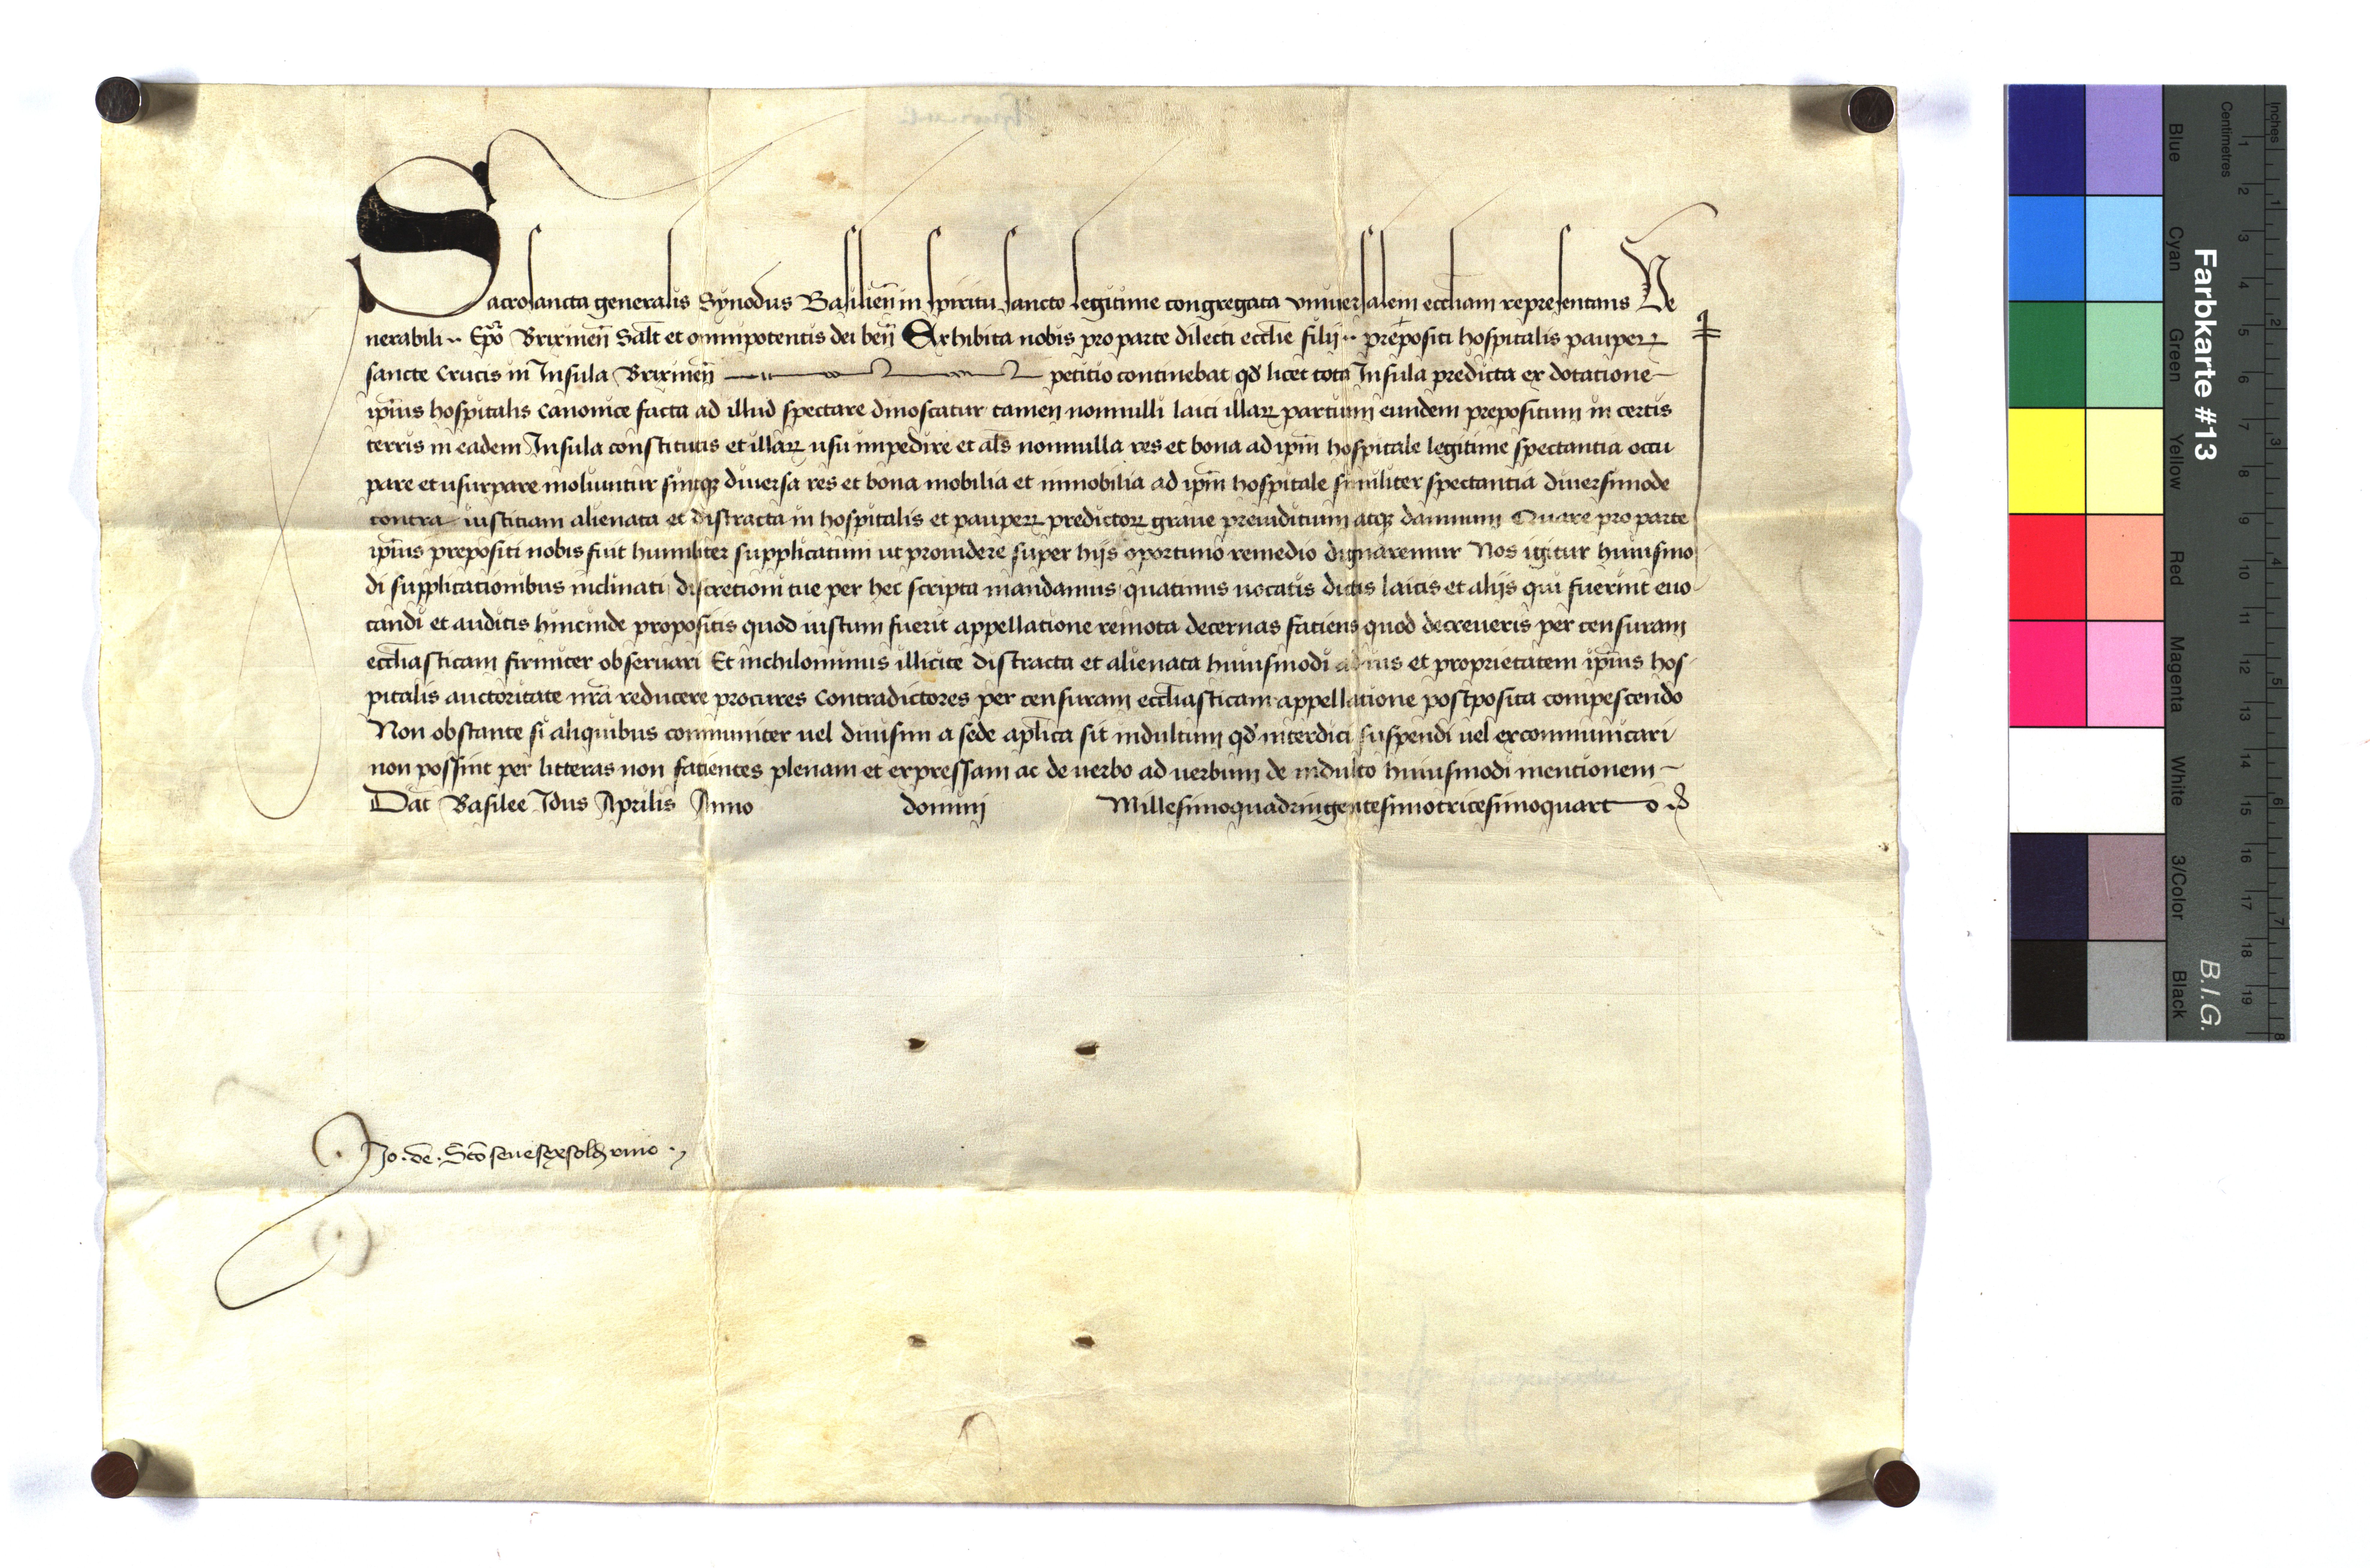 Sacrosancta generalis Synodus Basilien̄ in spiritu sancto legitime congregata vniuersalem eccl̄iam representans Ve
nerabili ·· Ep̄o Brixinen̄ Sal̄t et om̄ipotentis dei ben̄ Exhibita nobis pro parte dilecti eccl̄ie filij ·· prepositi hospitalis pauperꝝ
sancte Crucis in Insula Brixinen̄ petitio continebat qd̄ licet tota Insula predicta ex dotatione
ip̄ius hospitalis canonice facta ad illud spectare dinoscatur tamen nonnulli laici illarꝝ partium eundem prepositum in certis
terris in eadem Insula constitutis et illarꝝ usu impedire et al̄s nonnulla res et bona ad ip̄m hospitale legitime spectantia occu
pare et usurpare moliuntur sintqꝫ diuersa res et bona mobilia et inmobilia ad ip̄m hospitale similiter spectantia diuersimode
contra iusticiam alienata et distracta in hospitalis et pauperꝝ predictorꝝ graue preiudicium atqꝫ damnum Quare pro parte
ip̄ius prepositi nobis fuit humiliter supplicatum ut prouidere super hijs oportuno remedio dignaremur Nos igitur huiusmo
di supplicationibus inclinati discretioni tue per hec scripta mandamus quatinus uocatis dictis laicis et alijs qui fuerint euo
candi et auditis hincinde propositis quod iustum fuerit appellatione remota decernas faciens quod decreueris per censuram
eccl̄iasticam firmiter obseruari Et nichilominus illicite distracta et alienata huiusmodi ad ius et proprietatem ip̄ius hos
pitalis auctoritate nr̄a reducere procures Contradictores per censuram eccl̄iasticam appellatione postposita compescendo
Non obstante si aliquibus communiter uel diuisim a sede ap̄lica sit indultum qd̄ interdici suspendi uel excommunicari
non possint per litteras non facientes plenam et expressam ac de uerbo ad uerbum de indulto huiusmodi mentionem
Dat̄ Basilee Idus Aprilis Anno domini Millesimoquadringentesimotricesimoquarto
Jo. de.
Farbkarte #13
B.I.G.
Blue Cyan Green Yellow Red Magenta White 3/Color Black
Centimetres 1 2 3 4 5 6 7 8 9 10 11 12 13 14 15 16 17 18 19
Inches 1 2 3 4 5 6 7 8